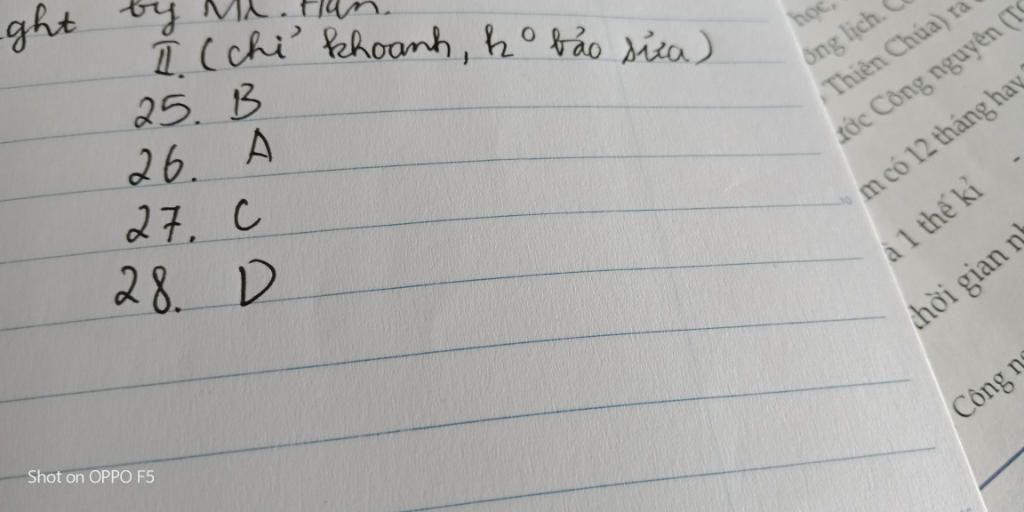 ght by Mr. Han.
II. (chỉ khoanh, k° bảo sửa)
25. B
26. A
27. C
28. D
học,
ông lịch.
Thiên Chúa) ra
ước Công nguyên
m có 12 tháng hay
à 1 thế kỉ
thời gian
Công
Shot on OPPO F5